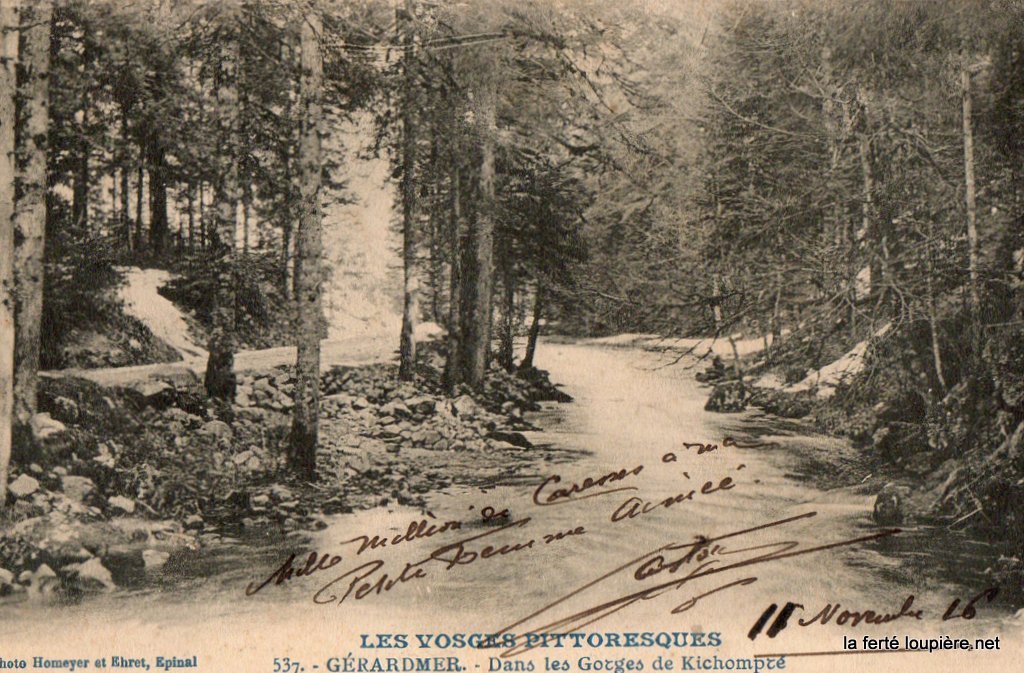 Mille Million de Caresses a ma
Petite Femme Aimée.
11 Novembre 16
LES VOSGES PITTORESQUES
Photo Homeyer et Ehret, Epinal
537. - GÉRARDMER. - Dans les Gorges de Kichompré
la ferté loupière.net